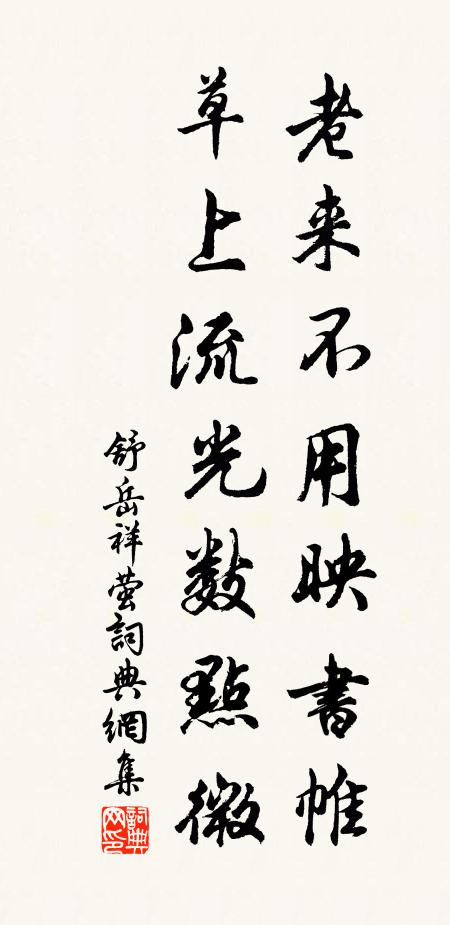 老来不用映書帷
草上流光数點微
舒岳祥萤詞典網集
詞典网印